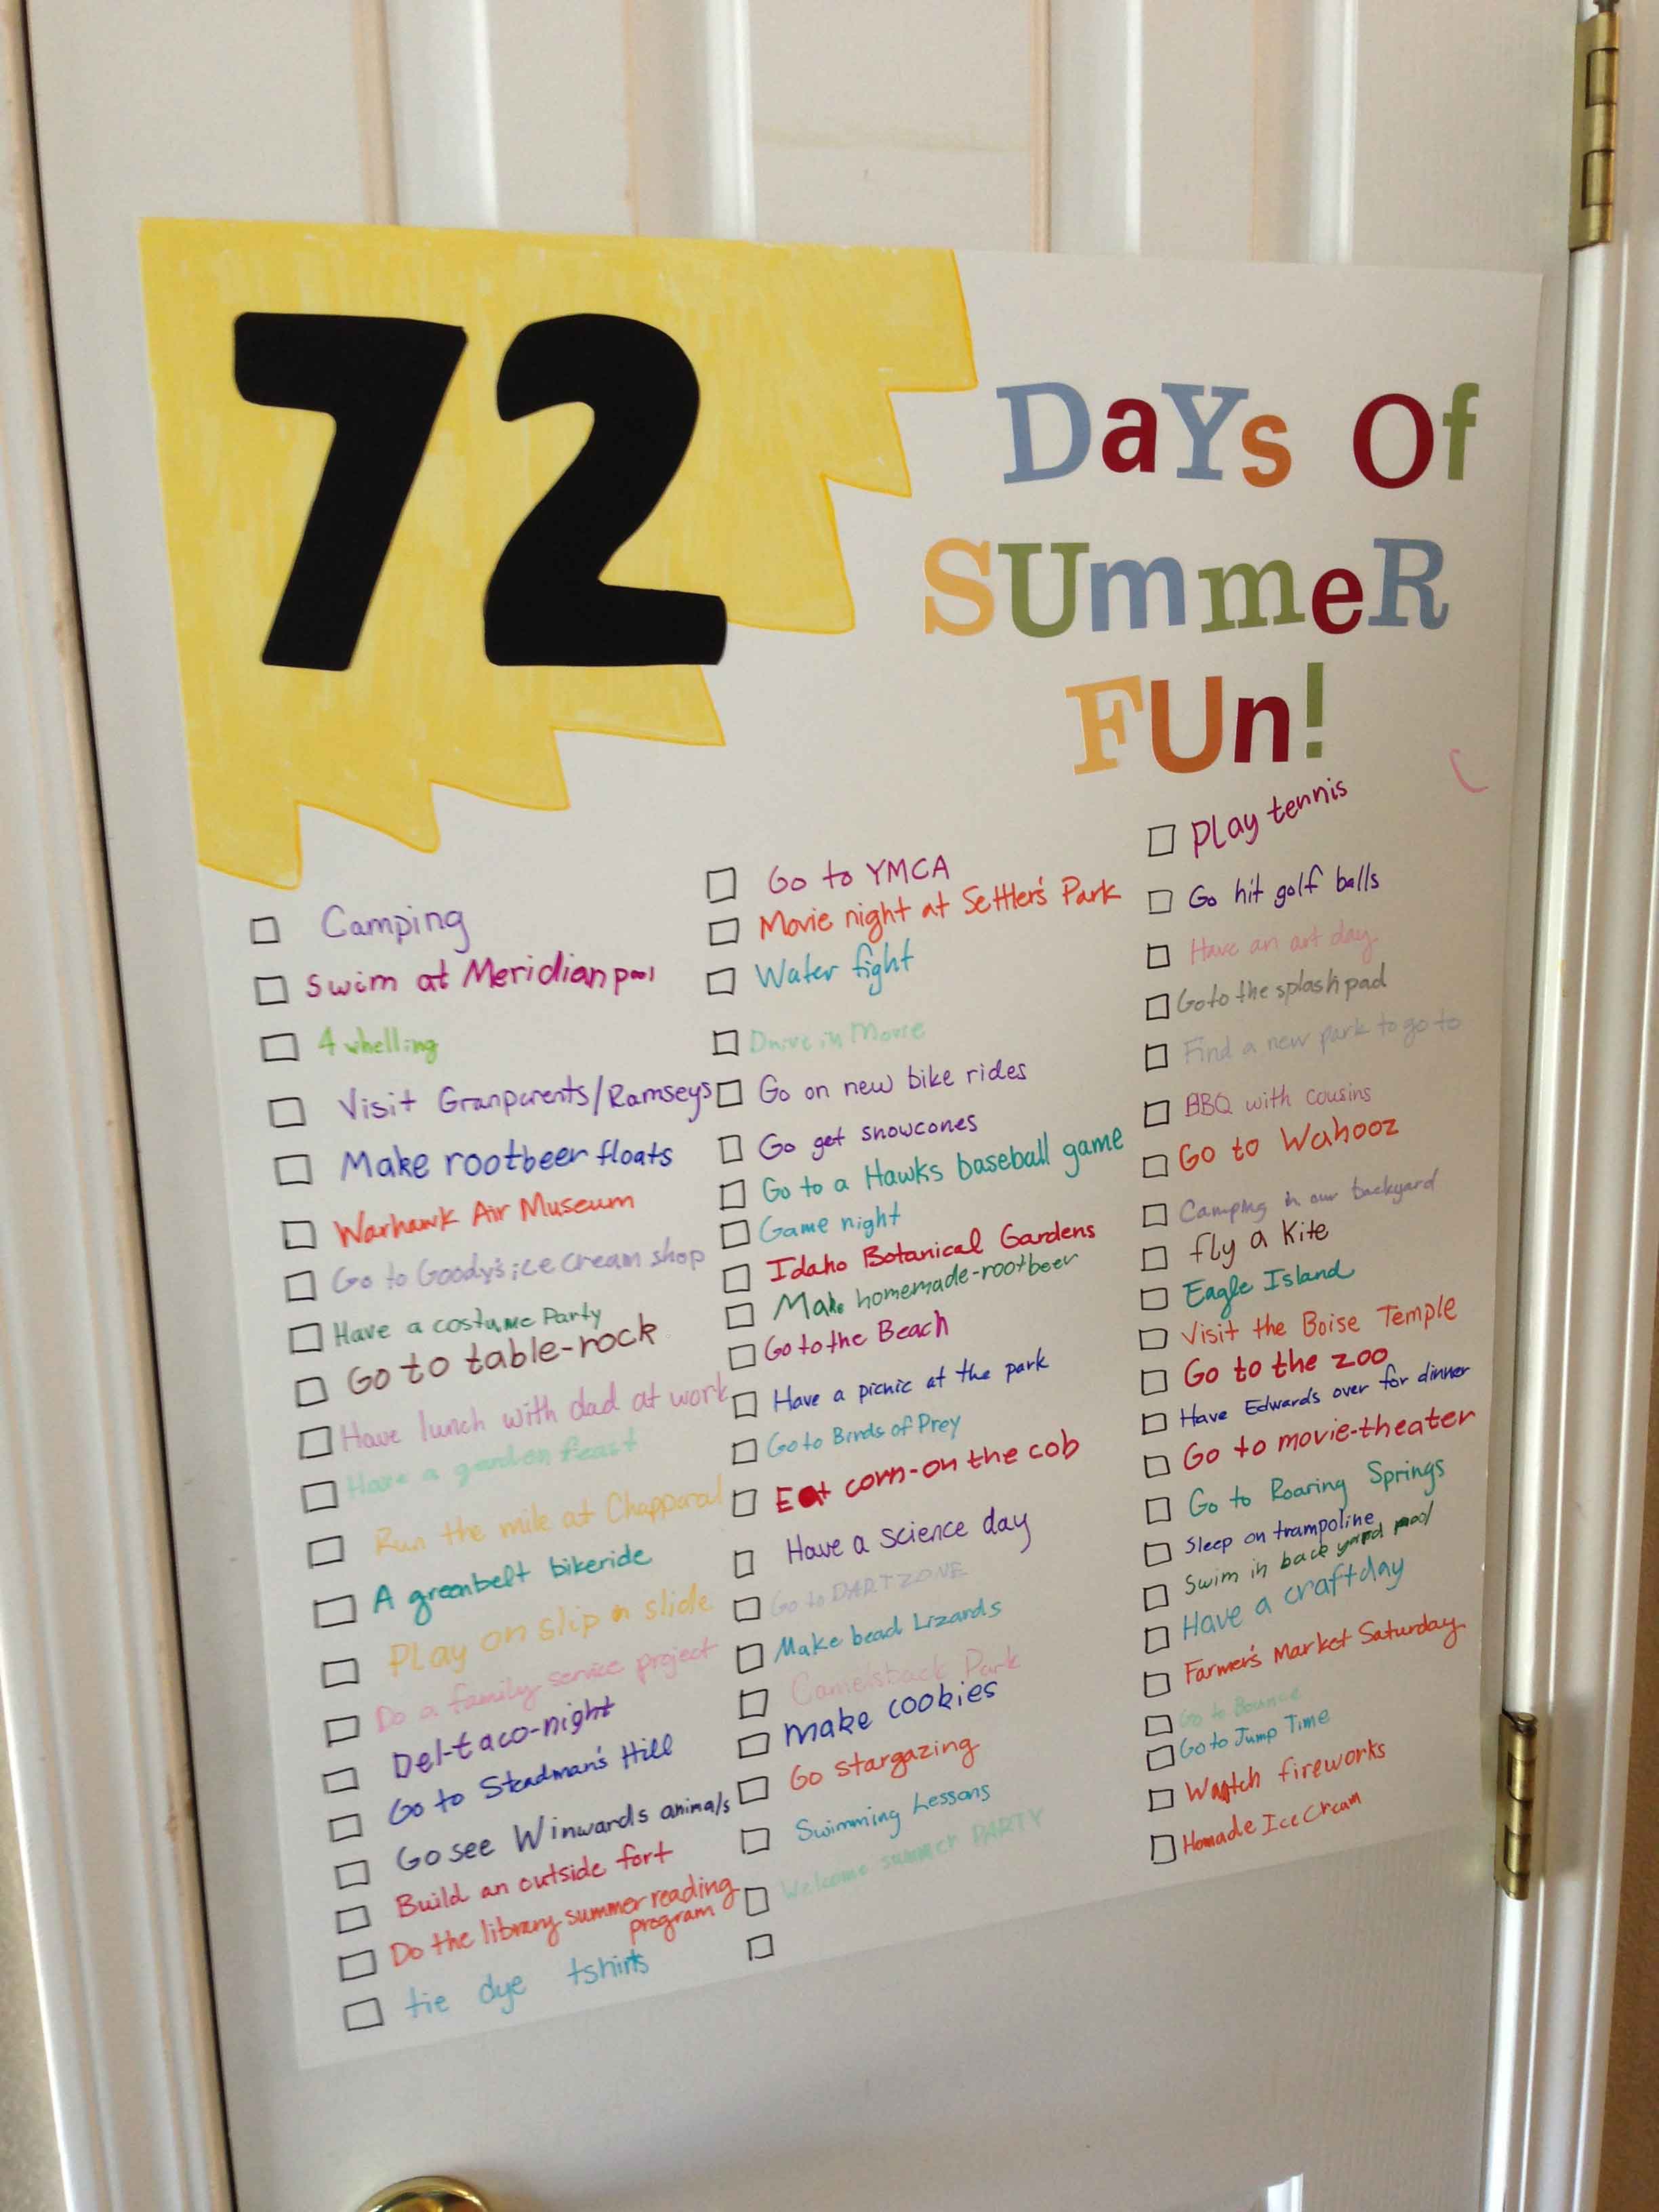 72
DaYs Of
SUmmeR
FUn!
Camping
Swim at Meridian pool
4 whelling
Visit Granparents/Ramseys
Make rootbeer floats
Warhawk Air Museum
Go to Goody's ice cream shop
Have a costume Party
Go to table-rock
Have lunch with dad at work
Have a garden feast
Run the mile at Chapparal
A greenbelt bikeride
Play on slip n slide
Do a family service project
Del-taco-night
Go to Steadman's Hill
Go see Winwards animals
Build an outside fort
Do the library summer reading
program
tie dye tshirts
Go to YMCA
Movie night at Settler's Park
Water fight
Drive in Movie
Go on new bike rides
Go get snowcones
Go to a Hawks baseball game
Game night
Idaho Botanical Gardens
Make homemade-rootbeer
Go to the Beach
Have a picnic at the park
Go to Birds of Prey
Eat corn-on the cob
Have a science day
Go to DART ZONE
Make bead Lizards
Camelsback Park
make cookies
Go stargazing
Swimming Lessons
Welcome summer PARTY
Play tennis
Go hit golf balls
Have an art day
Go to the splash pad
Find a new park to go to
BBQ with cousins
Go to Wahooz
Camping in our backyard
fly a Kite
Eagle Island
Visit the Boise Temple
Go to the zoo
Have Edwards over for dinner
Go to movie-theater
Go to Roaring Springs
Sleep on trampoline
Swim in back yard pool
Have a craftday
Farmer's Market Saturday
Go to Bounce
Go to Jump Time
Watch fireworks
Homade Ice Cream